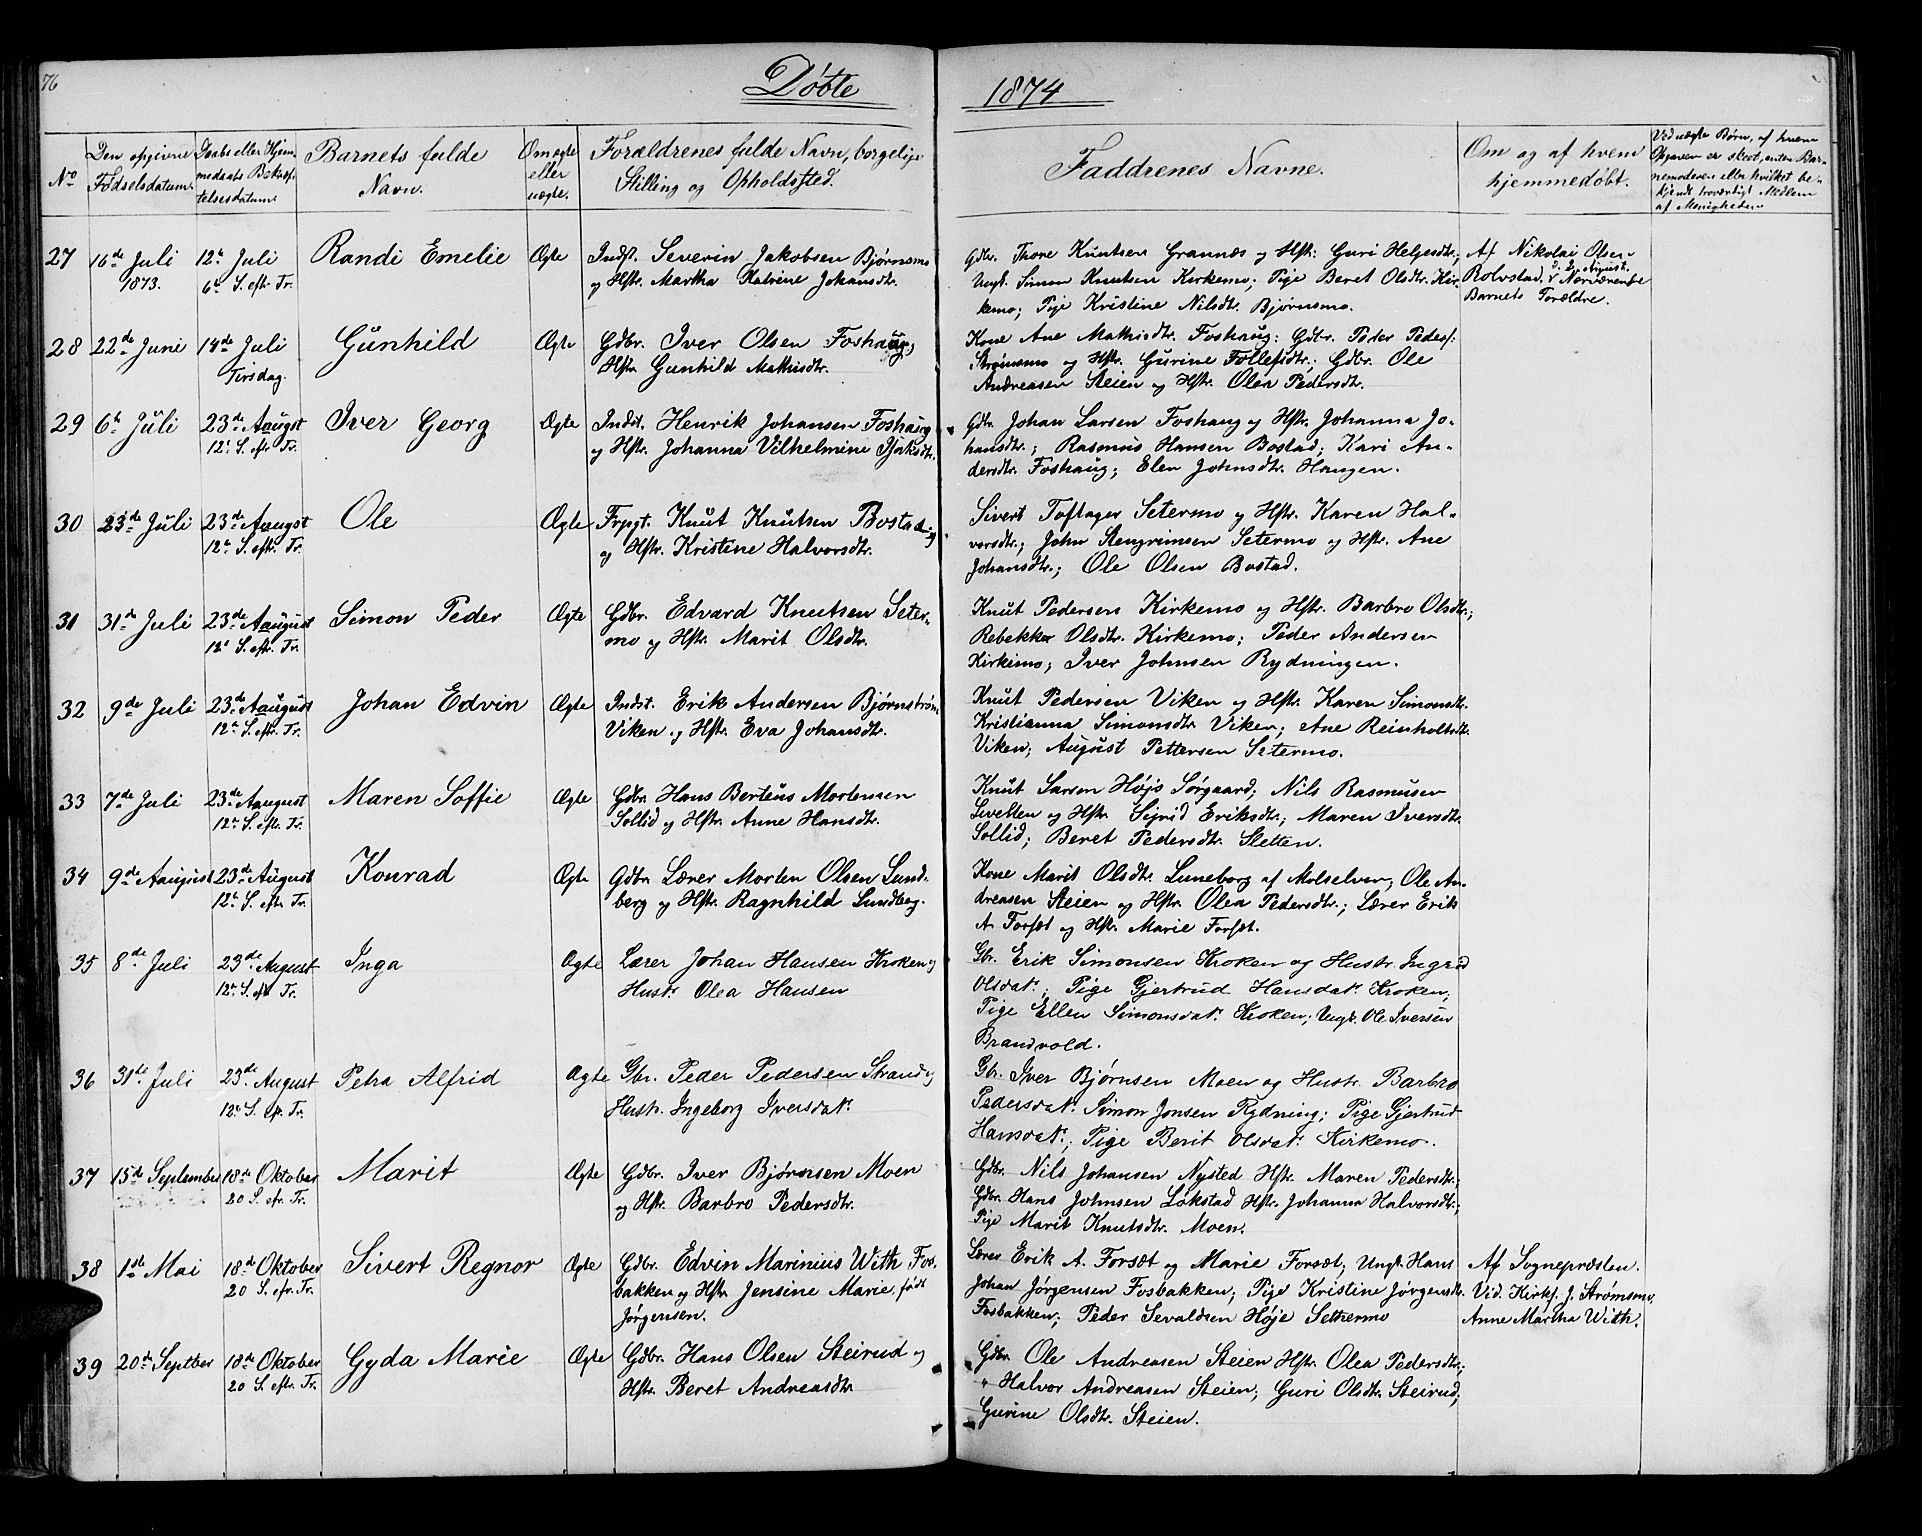 76
Døbte
1874
No
Den opgivne Fødselsdatum.
Daabs eller Hjemmedaabs Bekræftelsesdatum.
Barnets fulde Navn.
Om ægte eller uægte.
Forældrenes fulde Navn, borgelige Stilling og Opholdssted.
Faddrenes Navne.
Om og af hvem hjemmedøbt.
Ved uægte Børn, af hvem Opgaven er skeet, enten Barnemoderen eller hvilket bekjendt troværdigt Medlem af Menigheden
27 16de Juli 12te Juli Randi Emelie Ægte Indst. Severin Jakobsen Bjørnsmo
1873. 6te S. eftr. Tr. og Hstr. Martha Katrine Johansdtr.
Gdbr. Thore Knutsen Grannæs og Hstr. Guri Helgesdtr.;
Ungk. Simon Knutsen Kirkemo; Pige Beret Olsdtr. Kir-
kemo; Pige Kristine Nilsdtr. Bjørnsmo.
Af Nikolai Olsen
Rolvstad, d. 2 August. Nærværende
Barnets Forældre.
28 22de Juni 14de Juli Gunhild Ægte Gdbr. Iver Olsen Foshaug,
Tirsdag. Hstr. Gunhild Mathisdtr.
Kone Ane Mathisdtr. Foshaug; Gdbr. Peder Peders:
Strømsmo og Hstr. Gurine Tollefsdtr.; Gdbr. Ole
Andreasen Steien og Hstr. Olea Pedersdtr.
29 6te Juli 23de Aaugst Iver Georg Ægte Indst. Henrik Johansen Foshaug
12te S. eftr. Tr. og Hstr. Johanna Vilhelmine
Gdbr. Johan Larsen Foshaug og Hstr. Johanna Jo-
hansdtr.; Rasmus Hansen Bostad; Kari An-
dersdtr. Foshaug; Elen Johnsdtr. Haugen.
30 23de Juli 23de Aaugst Ole Ægte Frpgt. Knut Knutsen Bostad
12te S. eftr. Tr. og Hstr. Kristine Halvorsdtr.
Sivert Toftager Setermo og Hstr. Karen Hal-
vorsdtr.; John Stengrimsen Setermo og Hstr. Ane
Johansdtr.; Ole Olsen Bostad.
31 31de Juli 23de Aaugust Simon Peder Ægte Gdbr. Edvard Knutsen Seter-
12te S. eftr. Tr. mo og Hstr. Marit Olsdtr.
Knut Pedersen Kirkemo og Hstr. Barbro Olsdtr.;
Rebekka Olsdtr. Kirkemo; Peder Andersen
Kirkemo; Iver Johnsen Rydningen.
32 9de Juli 23de Aaugust Johan Edvin Ægte Indst. Erik Andersen Bjørnstrøm
12te S. eftr. Tr. Viken og Hstr. Eva Johansdtr.
Knut Pedersen Viken og Hstr. Karen Simonsdtr.
Kristianna Simonsdtr. Viken; Ane Reinholtsdtr.
Viken; August Pettersen Setermo.
33 7de Juli 23de Aaugust Maren Soffie Ægte Gdbr. Hans Berteus Mortensen
12te S. eftr. Tr. Sollid og Hstr. Anne Hansdtr.
Knut Larsen Højo Sørgaard; Nils Rasmusen
Sletten og Hstr. Sigrid Eriksdtr.; Maren Iversdtr.
Sollid; Beret Pedersdtr. Sletten.
34 9de Aaugust 23de Aaugust Konrad Ægte Gdbr. Lærer Morten Olsen Lund-
12te S. eftr. Tr. berg og Hstr. Ragnhild Lundberg.
Kone Marit Olsdtr. Luneborg af Molselven; Ole An-
dreasen Steien og Hstr. Olea Pedersdtr.; Lærer Erik
A. Forsæt og Hstr. Marie Forsæt.
35 8de Juli 23de August Inga Ægte Lærer Johan Hansen Kroken og
12te S. eft. Tr. Hustr. Olea Hansen
Gbr. Erik Simonsen Kroken og Hustr. Ingrid
Olsdatr.; Pige Gjertrud Hansdatr. Kroken;
Pige Ellen Simonsdatr. Kroken; Ungk. Ole Iversen
Brandvold.
36 31de Juli 23de August Petra Alfrid Ægte Gbr. Peder Pedersen Strand og
12te S. eftr. Tr. Hustr. Ingeborg Iversdatr.
Gbr. Iver Bjørnsen Moen og Hustr. Barbro
Pedersdatr. Simon Jonsen Rydning; Pige Gjertrud
Hansdatr.; Pige Berit Olsdatr. Kirkemo.
37 15de September 18de Oktober Marit Ægte Gdbr. Iver Bjørnsen Moen
20 S. eftr. Tr. og Hstr. Barbro Pedersdtr.
Gdbr. Nils Johansen Nysted Hstr. Maren Pedersdtr.;
Gdbr. Hans Johnsen Løkstad Hstr. Johanna Halvorsdtr.;
Pige Marit Knutsdtr. Moen.
38 1ste Mai 18de Oktober Sivert Regnor Ægte Gdbr. Edvin Marinius With Fos-
20 S. eftr. Tr. bakken og Hstr. Jensine Marie, født
Jørgensen.
Lærer Erik A. Forsæt og Marie Forsæt; Ungk. Hans
Johan Jørgensen Fosbakken; Pige Kristine Jørgensdtr.
Fosbakken; Peder Sevaldsen Høje Sethermo
Af Sognepræsten.
Vid. Kirks. J. Strømsmo,
Anne Martha With.
39 20de Septber 18de Oktober Gyda Marie Ægte Gdbr. Hans Olsen Steirud og
20 S. eftr. Tr. Hstr. Beret Andreasdtr
Gdbr. Ole Andreasen Steien Hstr. Olea Pedersdtr.;
" Halvor Andreasen Steien; Guri Olsdtr. Steirud;
Gurine Olsdtr. Steien.